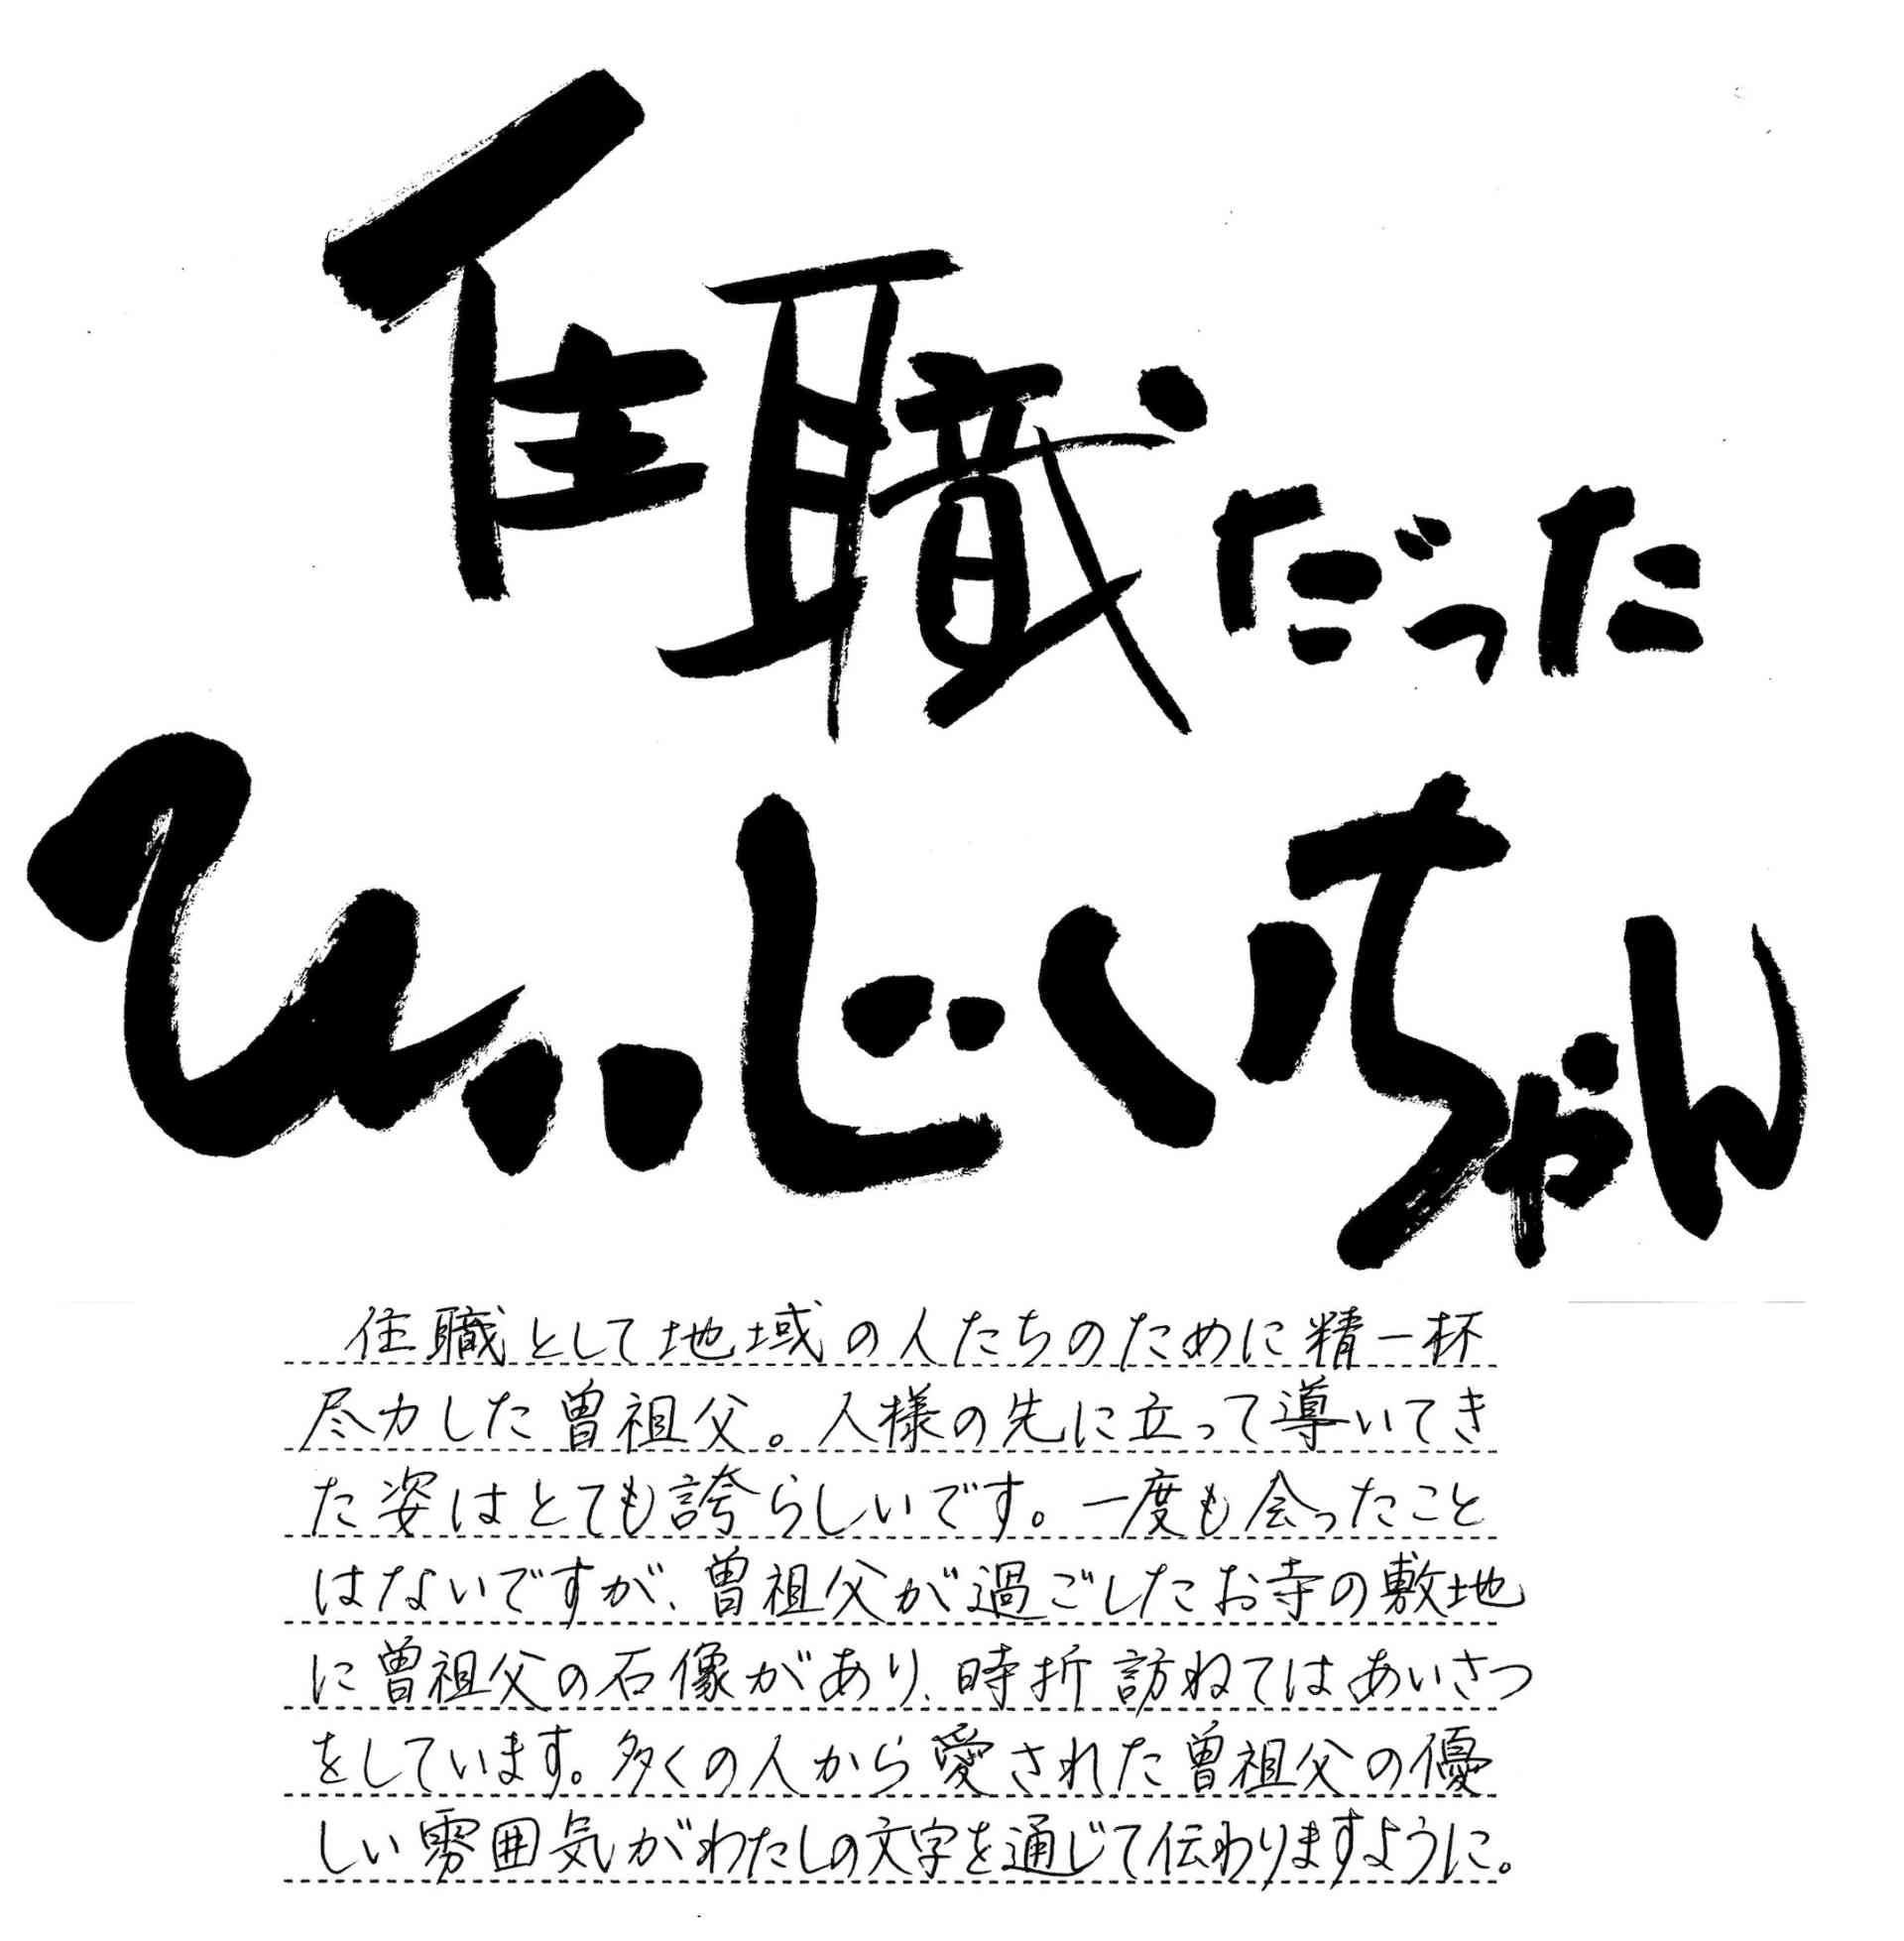 住職だった
ひぃじいちゃん
住職として地域の人たちのために精一杯
尽力した曽祖父。人様の先に立って導いてき
た姿はとても誇らしいです。一度も会ったこと
はないですが、曽祖父が過ごしたお寺の敷地
に曽祖父の石像があり、時折訪ねてはあいさつ
をしています。多くの人から愛された曽祖父の優
しい雰囲気がわたしの文字を通じて伝わりますように。